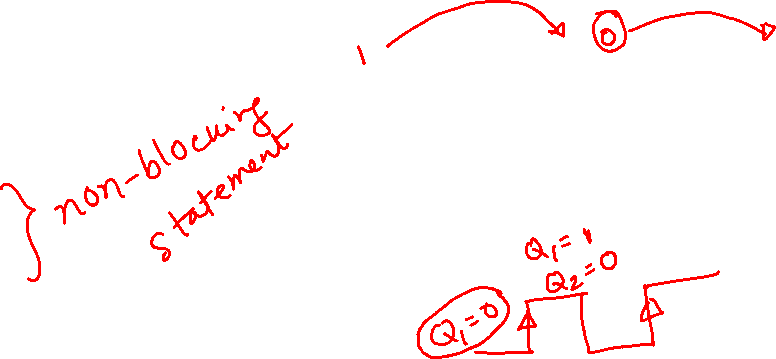 1
0
non-blocking
statement
Q1=1
Q2=0
Q1=0